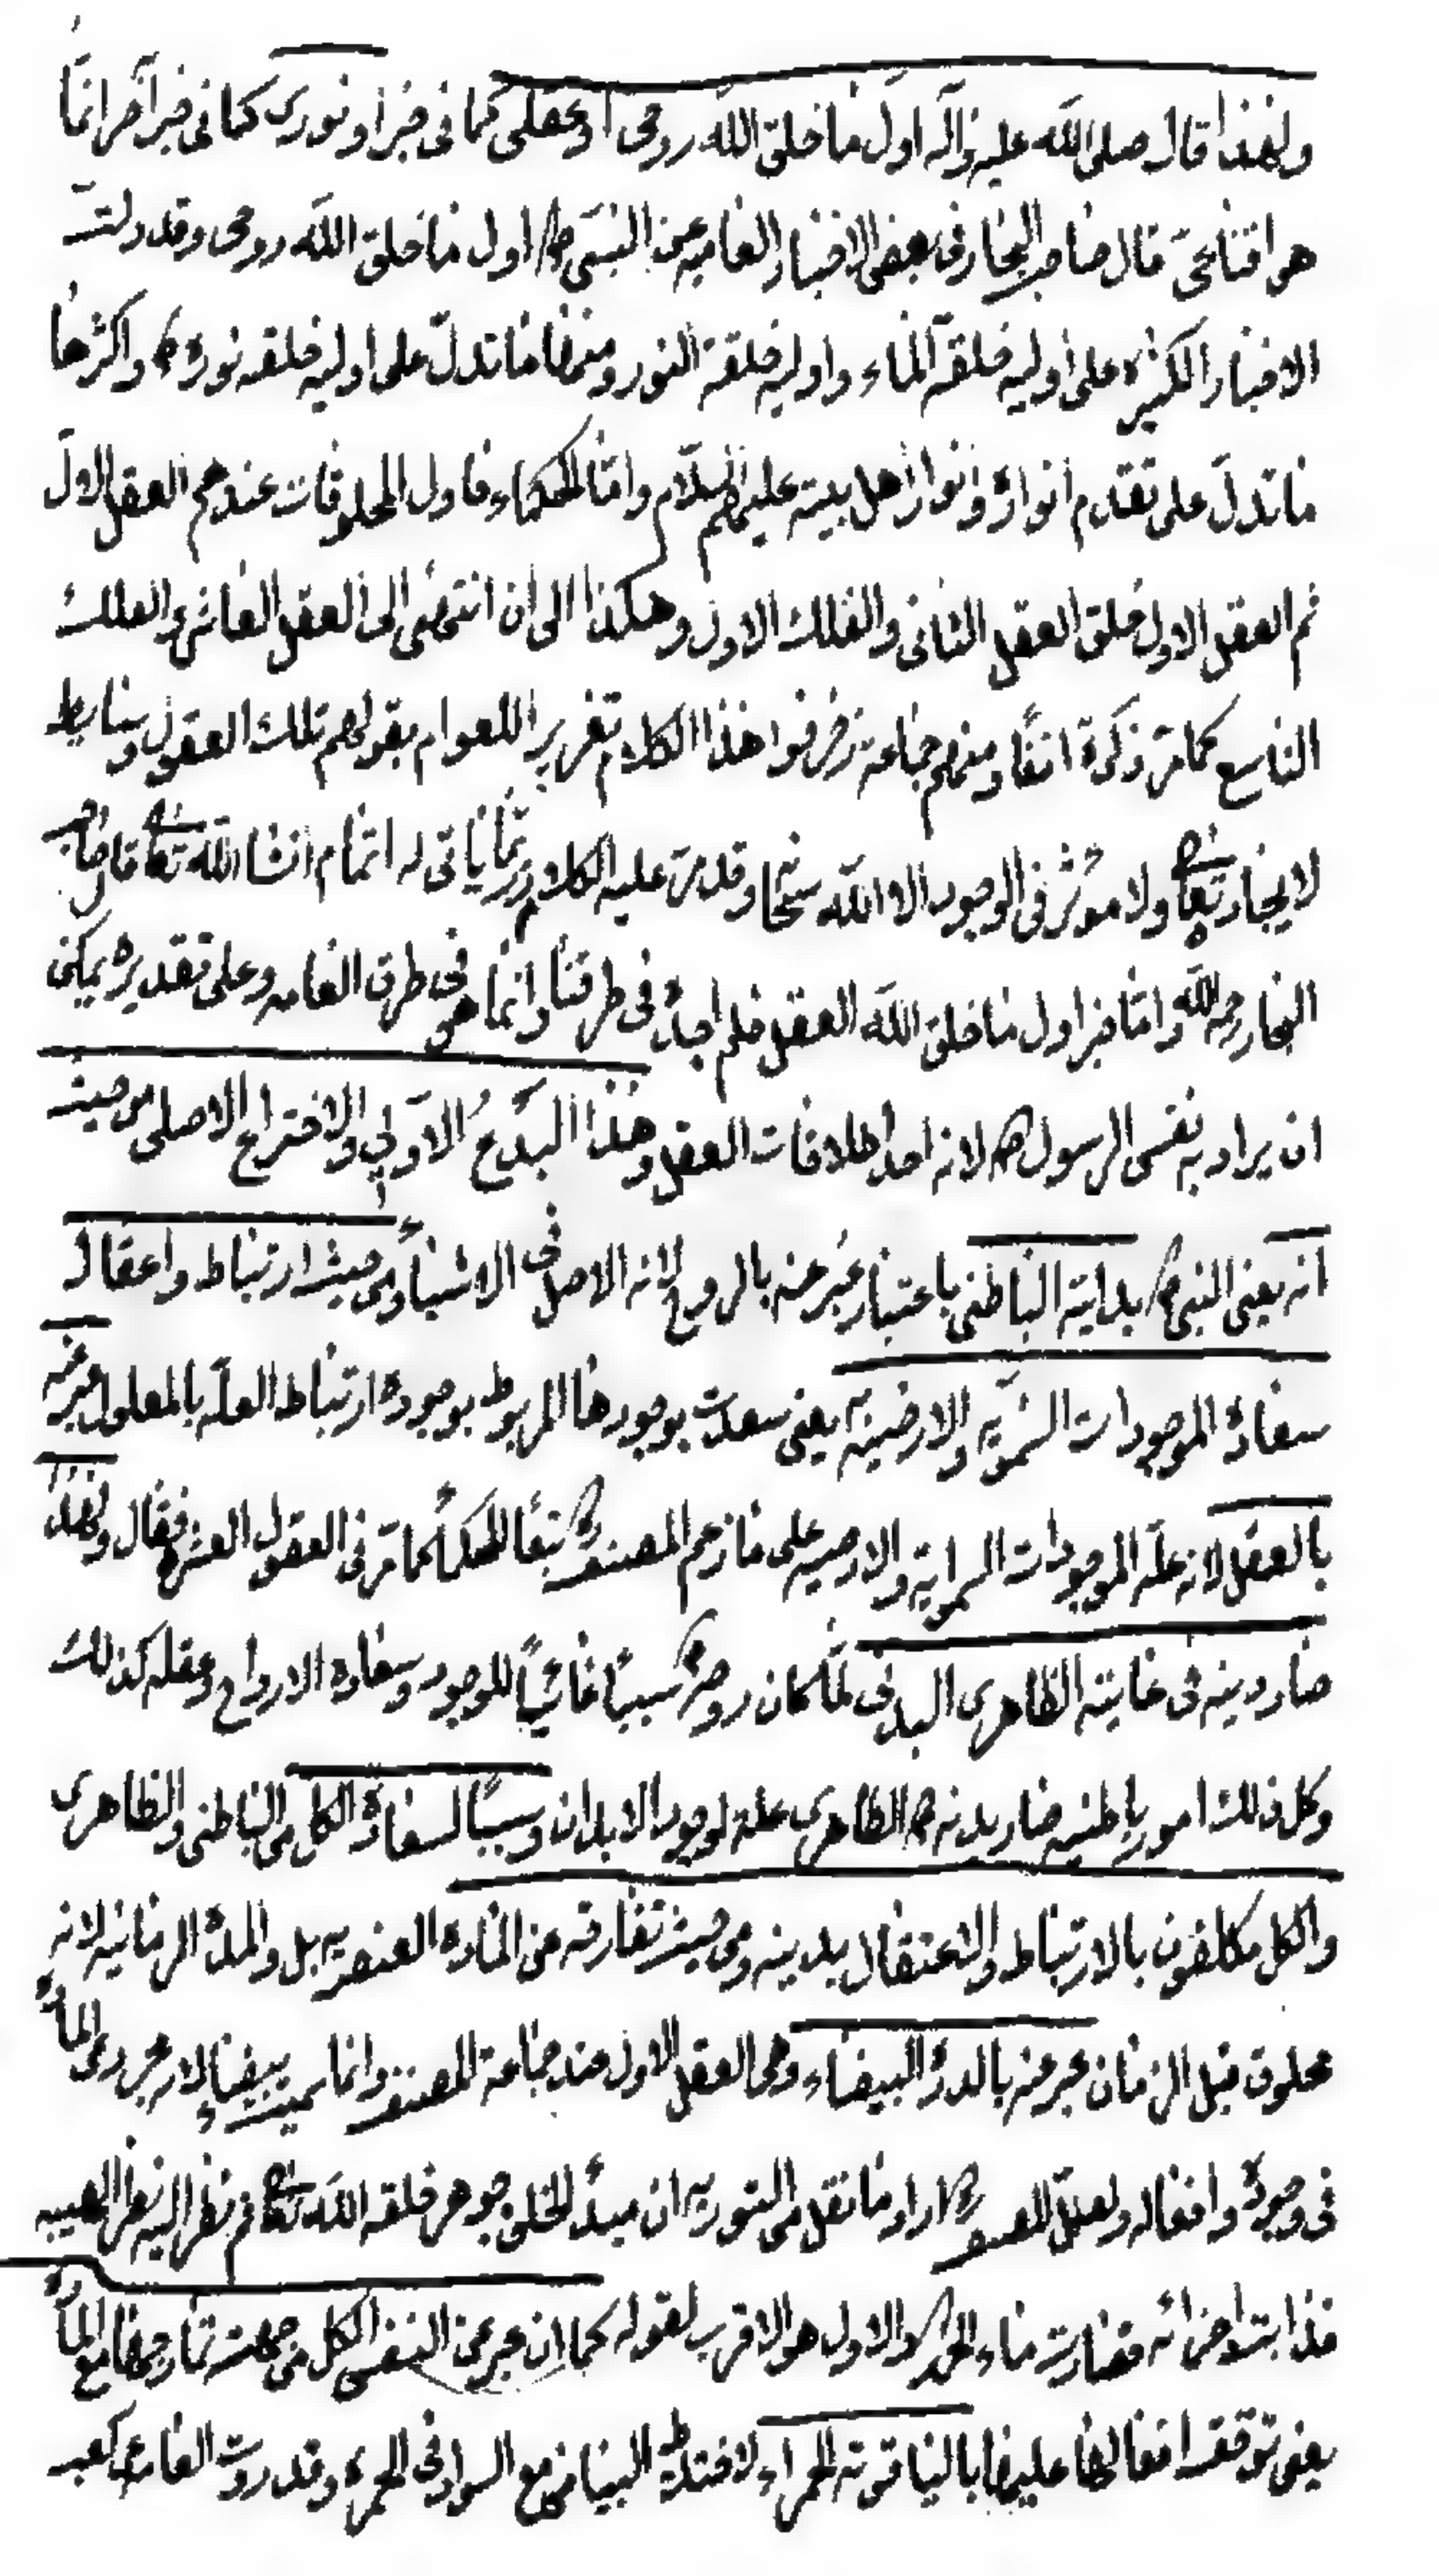 ولهذا قال صلى الله عليه وآله اول ما خلق الله روحى او عقلى كما فى خبر او نورى كما فى خبر آخر انما
هو اقنا محى قال صاحب البحار فى بعض الاخبار العاميه عن النبى ص اول ما خلق الله روحى وقد دلت
الاخبار الكثيره على اوليه خلقة الماء واوليه خلقة النور ومنها ما تدل على اوليه خلقه نوره ص واكثرها
ما تدل على تقدم انواره وانوار اهل بيته عليهم السلام واما الحكماء فاول المخلوقات عندهم العقل الاول
ثم العقل الاول خلق العقل الثانى والفلك الاول وهكذا الى ان انتهى الى العقل العاشر والفلك
التاسع كما مر ذكره انفًا ومنهم جماعة زخرفوا هذا الكلام تغريرا للعوام بقولهم تلك العقول وسايط
لايجاد تعا ولا موثر فى الوجود الا الله سبحا وقد مر عليه الكلام وربما ياتى له اتمام انشا الله تعا قال صاحب
البحار رحمه الله واما خبر اول ما خلق الله العقل فلم اجده فى طرقنا وانما هو فى طرق العامه وعلى تقديره يمكن
ان يراد به نفس الرسول ص لانه احد اطلاقات العقل وهذا البدع الاولى والاختراع الاصلى من حيث
انه يعنى النبى ص بداية الباطنى باعتبار عبر عنه بالروح لانه الاصل فى الاشياء ومن حيث ارتباط واعتقال
سعادة الموجودات السموية والارضيه يعنى سعدت بوجودها المربوط بوجوده ارتباط العله بالمعلول عبر عنه
بالعقل لانه علة الموجودات السماوية والارضيه على ما زعم المصنف ره تبعًا للحكماء كما مر فى العقول العشره فقال ولهذا
صار دينه فى غايته الظاهرى البدنى لما كان روحه ص سببًا غائيًا للوجود وسعاده الارواح وعقله كذلك
وكل ذلك امور باطنيه صار بدنه ص الظاهرى علة لوجود الابدان وسببًا لسعادة الكل من الباطنى والظاهرى
والكل مكلفون بالارتباط والاعتقال بدينه ومن حيث تفارقه عن الماده العنصريه بل والمدة الزمانيه لانه
مخلوق قبل الزمان عبر عنه بالدرة البيضاء وهى العقل الاول عند جماعة المصنف وانما سميت بيضاء لانه مجرد عن المادة
فى وجوده وافعاله ولعل المصنف ره اراد ما نقل من التوريه ان مبدء الخلق جوهر خلقه الله تعا ثم نظر اليه نظر الهيبه
فذابت اجزائه فصارت ماء الخ والاول هو الاقرب لقوله كما ان عبر عن النفس الكل من جهت تمازجها مع المادة
يعنى توقف افعالها عليها بالياقوته الحمراء لاختلاط البياض مع السواد فى الحمره وقد روت العامه كعب